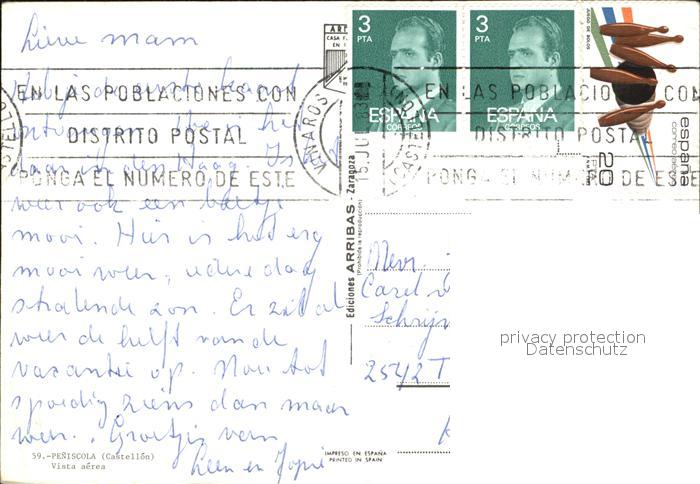 Lieve mam
EN LAS POBLACIONES CON
DISTRITO POSTAL
PONGA EL NUMERO DE ESTE
VINAROS
den Haag
weer ook een beetje
mooi. Hier is het erg
mooi weer, iedere dag
stralende zon. Er zit al
weer de helft van de
vacantie op. Nou tot
spoedig ziens dan maar
weer. Groetjes van
Leen en Jopie
59.-PEÑISCOLA (Castellón)
Vista aérea
Ediciones ARRIBAS - Zaragoza
(Prohibida la reproducción)
3
PTA
ESPAÑA
CORREOS
3
PTA
ESPAÑA
CORREOS
JUEGO DE BOLOS
españa
correos
20
PTA
EN LAS POBLACIO CON
DISTRITO POSTA
PONGA EL NUMERO DE ESTE
Mevr.
Carel v
Schrijv
2542 T
privacy protection
Datenschutz
IMPRESO EN ESPAÑA
PRINTED IN SPAIN